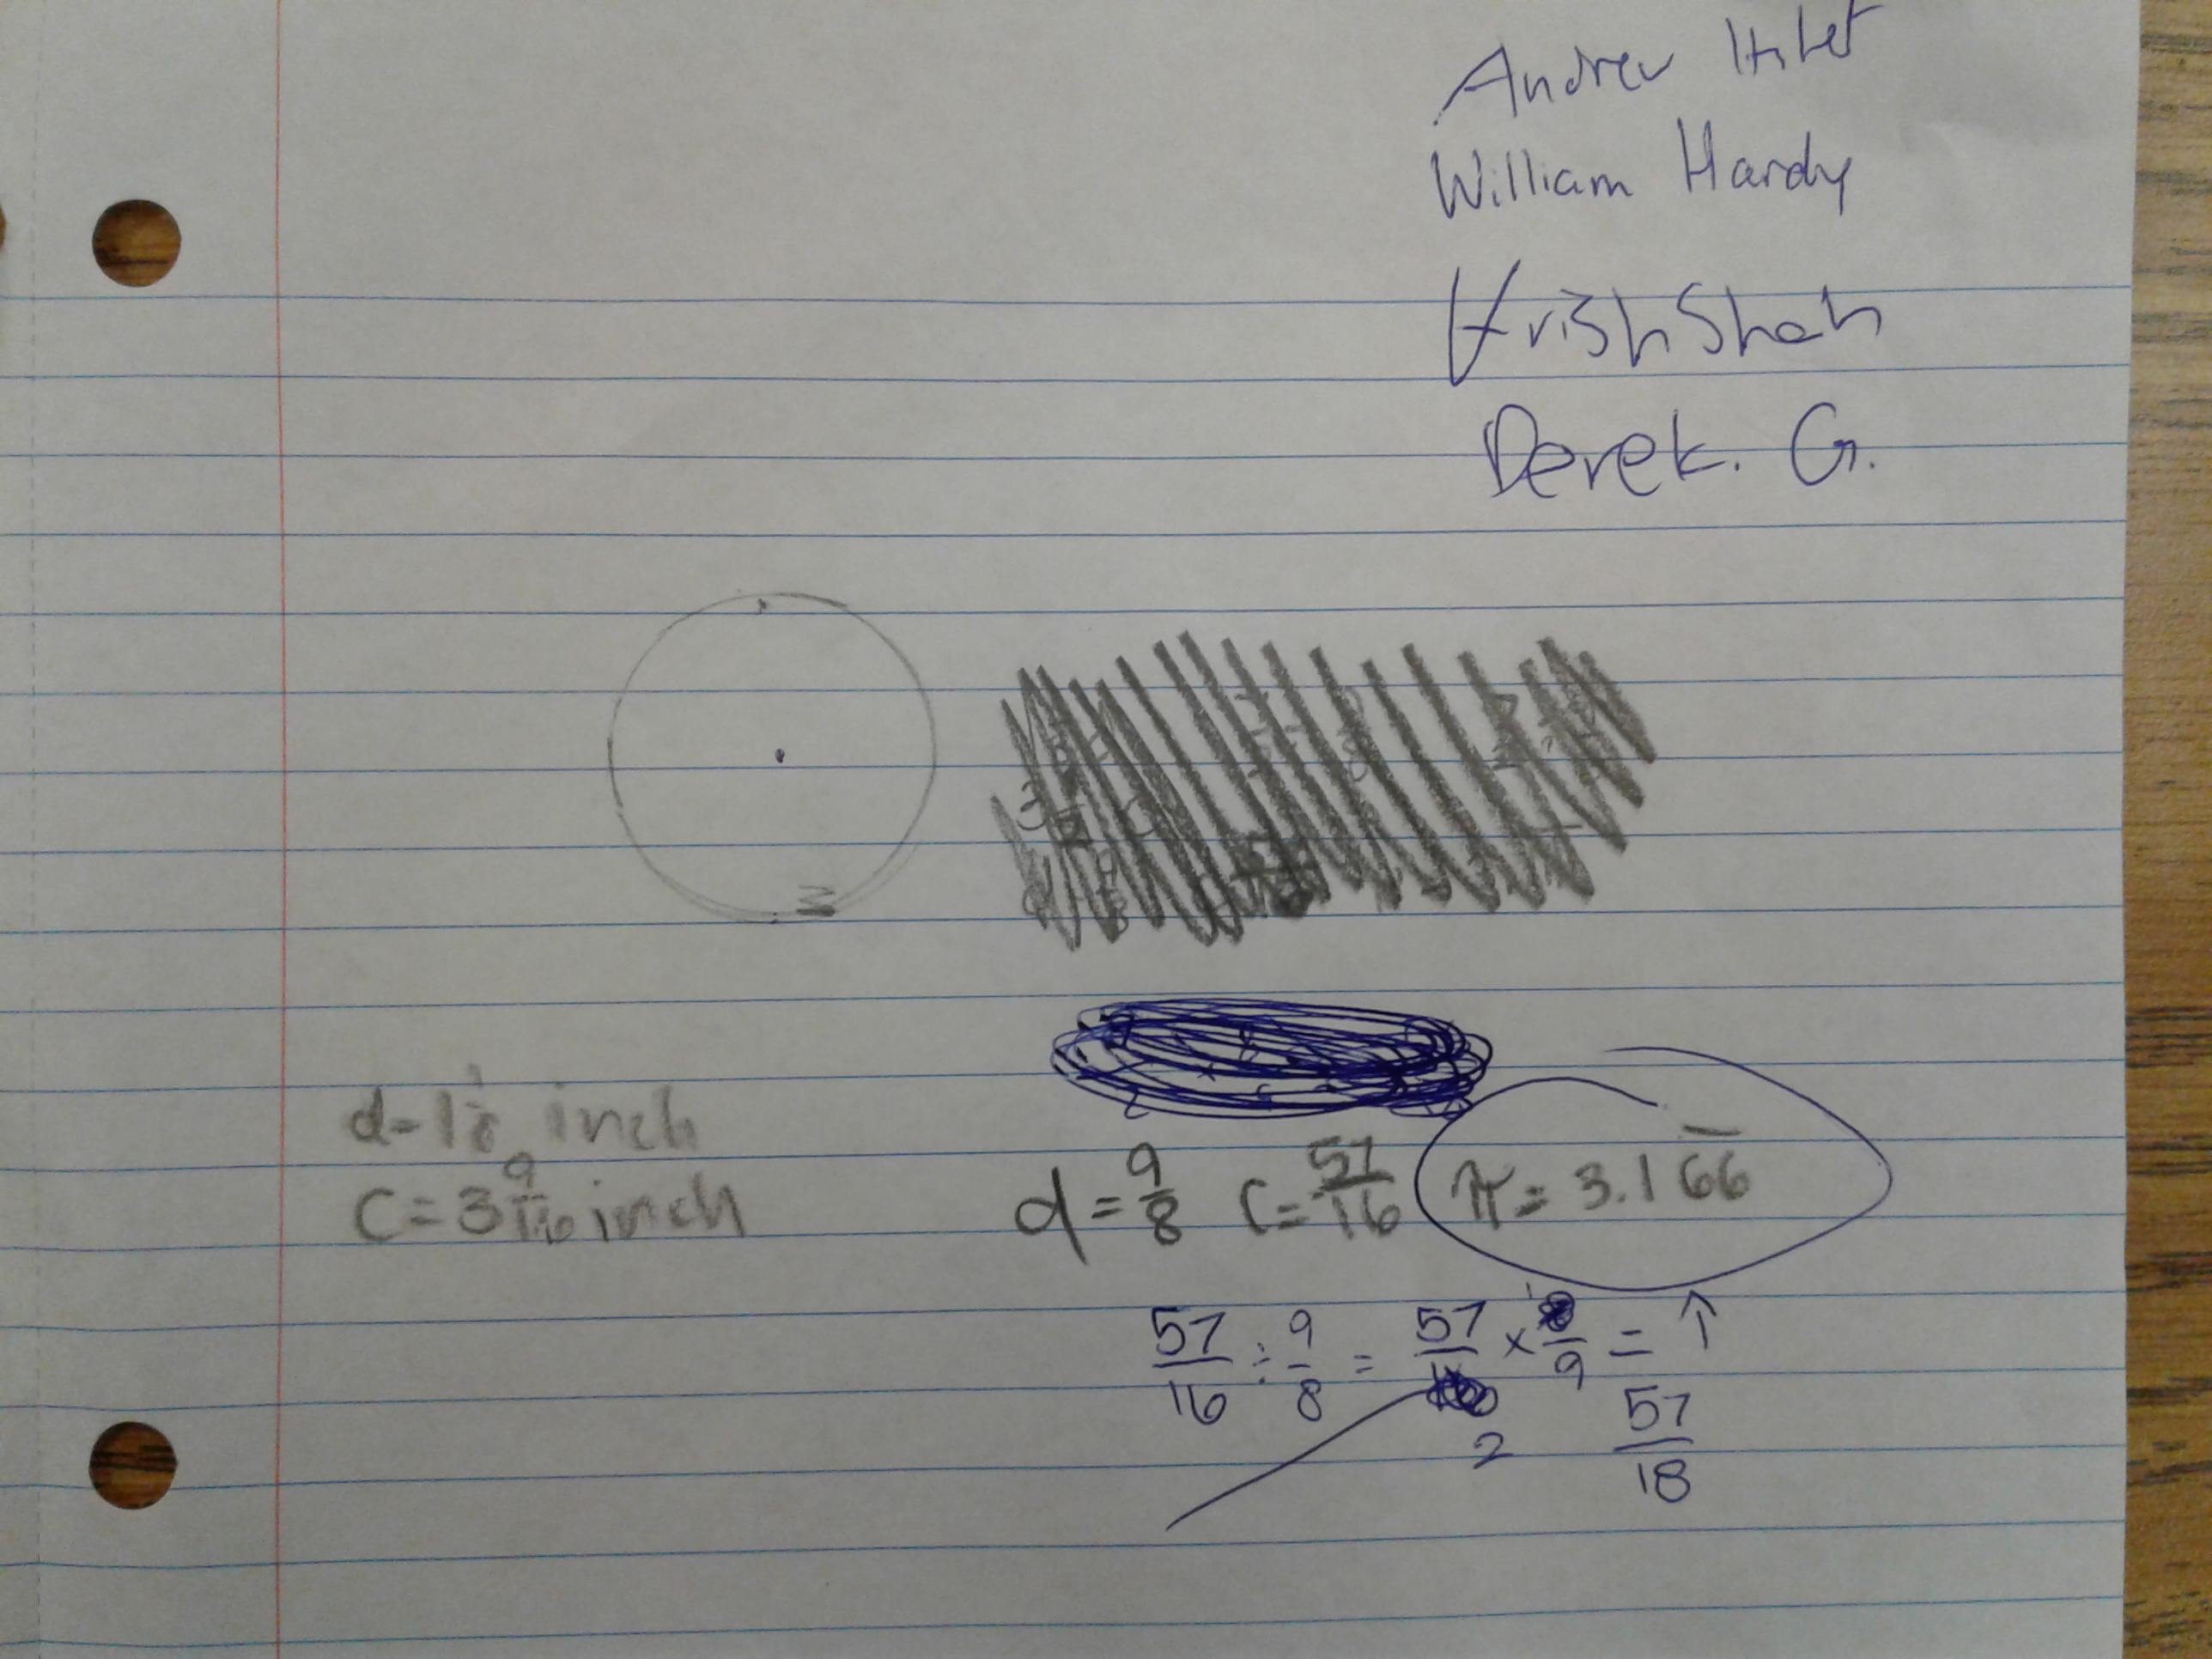 Andrew
William Hardy
Krish Shah
Derek. G.
d=1 1/8 inch
C=3 9/16 inch
d=9/8 C=57/16 π=3.166
57/16 ÷ 9/8 = 57/16 × 8/9 = ↑
1
2
57/18